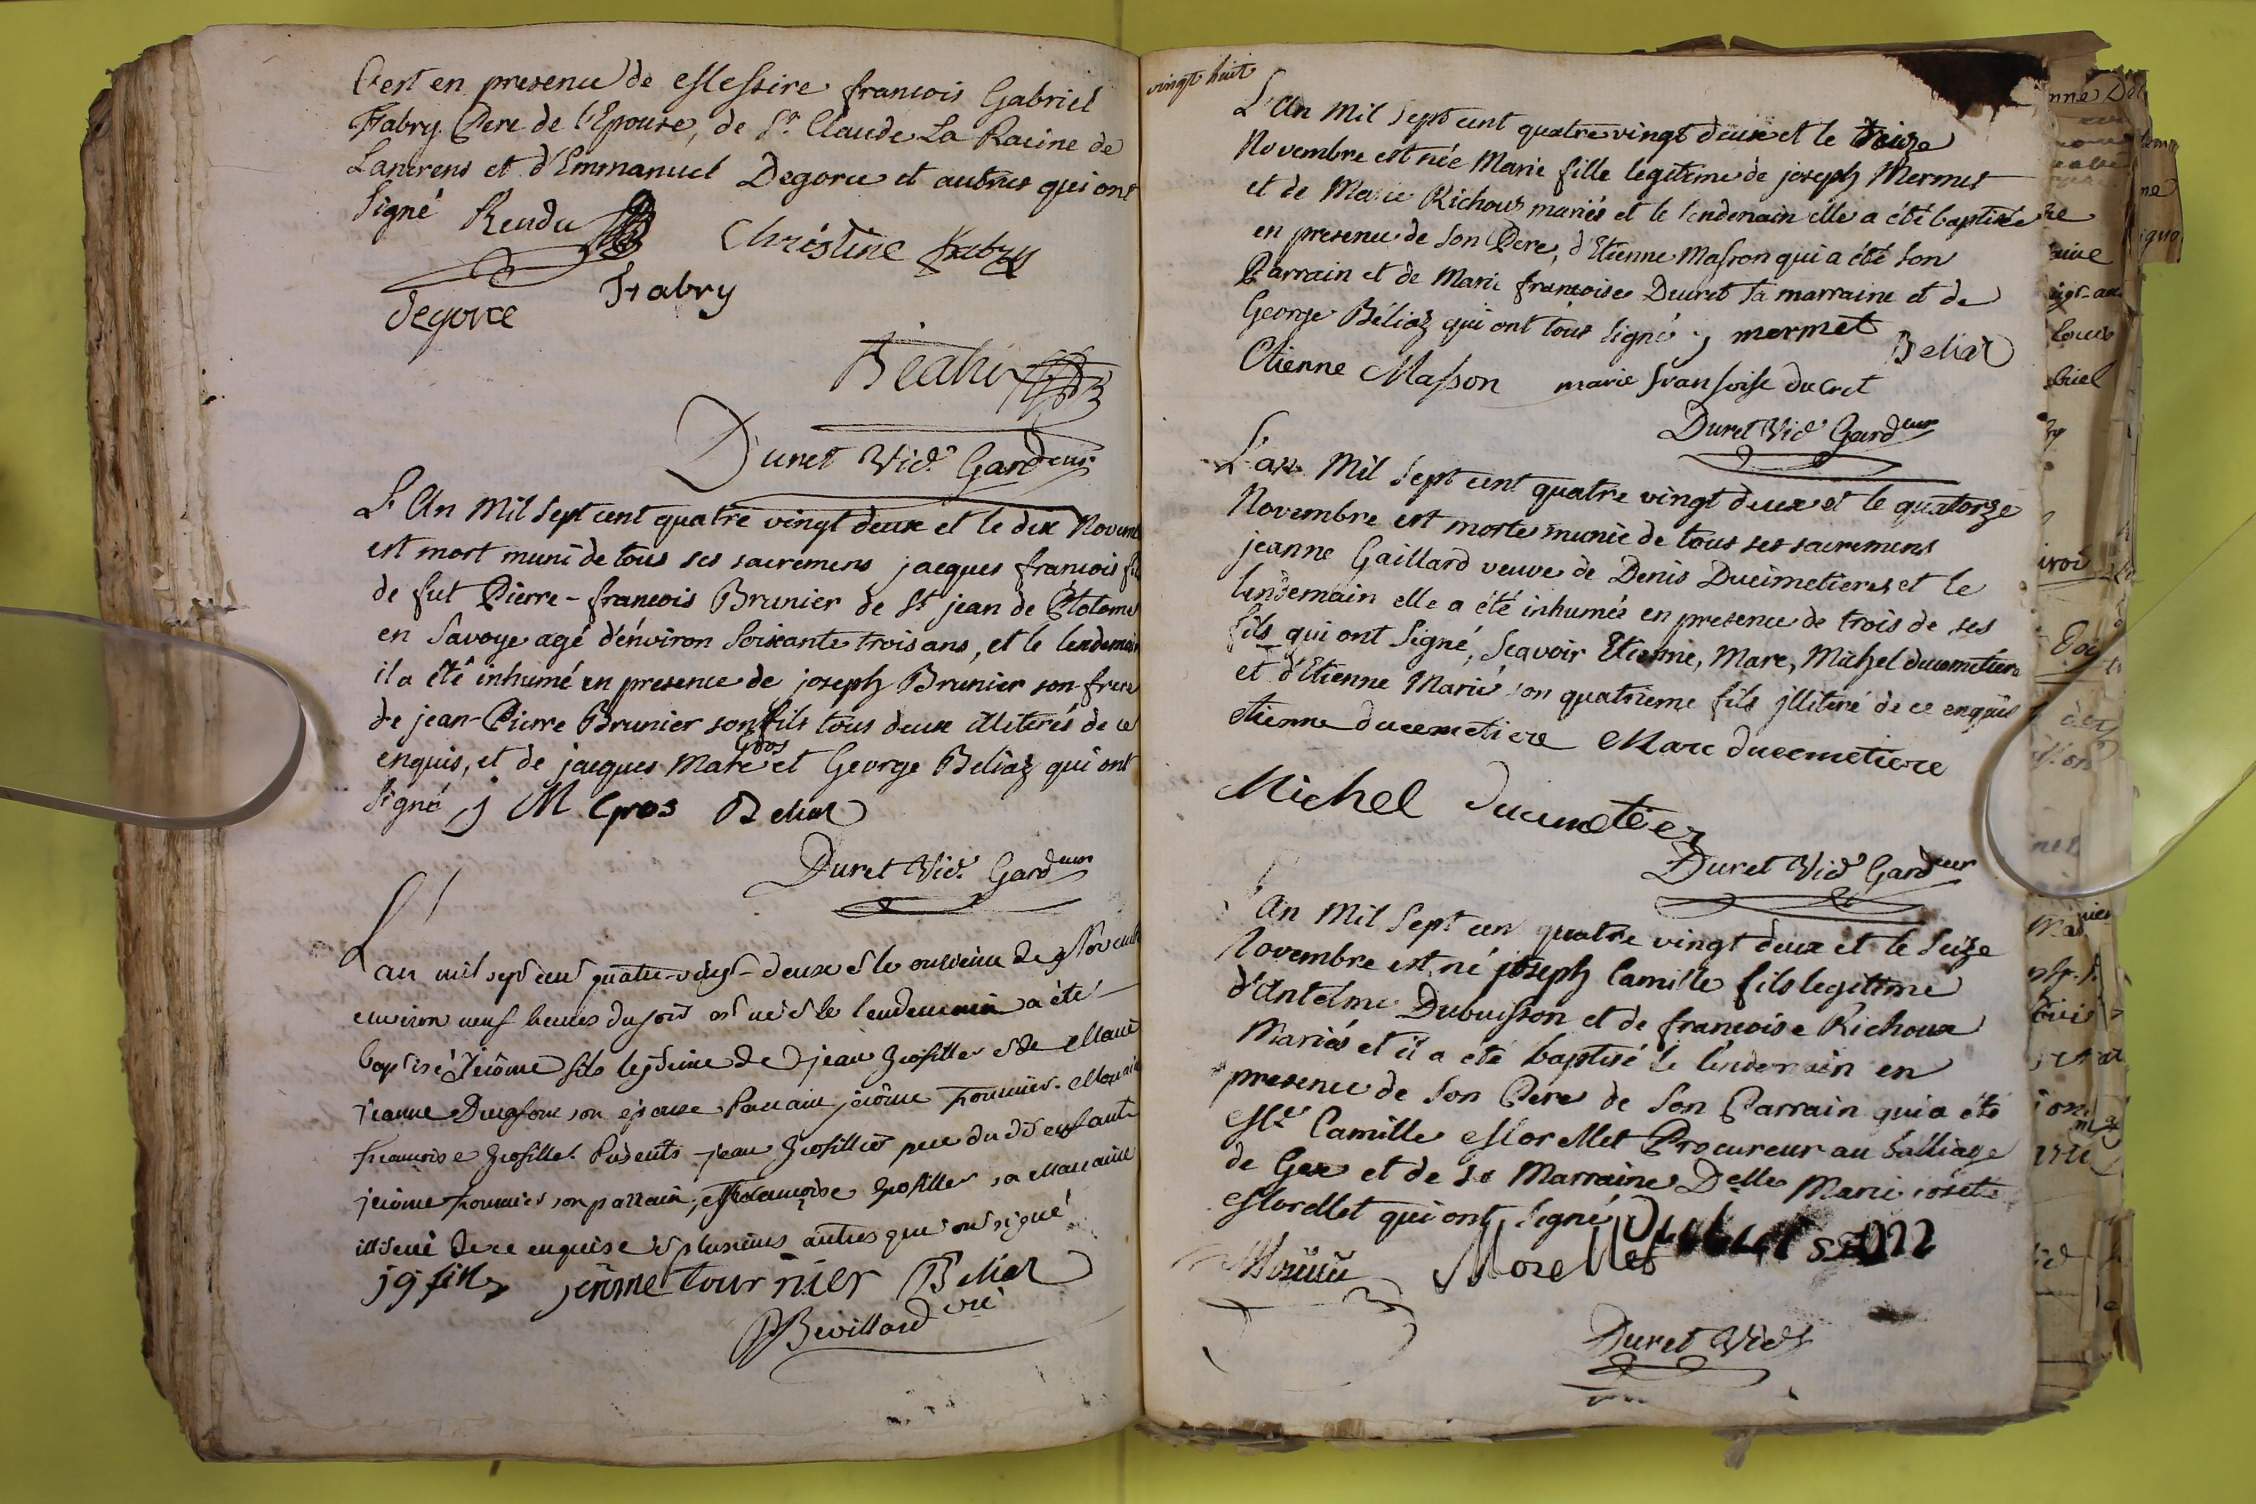 C'est en presence de Messire francois Gabriel
Fabry Pere de l'Epouse, de Sr. Claude La Racine de
et d'Emmanuel Degorce et autres qui ont
signé Rendu Christine fabry
degorce Fabry
Béatrix
Duret Vic. Gardeur
L'An Mil sept cent quatre vingt deux et le dix Novem
est mort muni de tous ses sacremens jacques francois fils
de fut Pierre-francois Brunier de St jean de Ptolome
en Savoye agé d'énviron soixante trois ans, et le lendemain
il a été inhumé en presence de joseph Brunier son frere
de jean-Pierre Brunier son fils tous deux illeterés de ce
Gros
enquis, et de jacques Marc et George Béliaz qui ont
signé j M Gros Beliaz
Duret Vic. Gardeur
L'an mil sept cent quatre-vingt-deux et le onzieme de Novembre
environ neuf heures du soir est né et le lendemain a été
baptisé jérôme fils legitime de jean Grosfillex et de Marie
jeanne son epouse Parrain jérôme Fournier. Marraine
francoise Grosfillex Présents jean Grosfillex pere du dit enfant
jerôme Fournier son parrain, francoise Grosfillex sa Marraine
illiteré de ce enquise et plusieurs autres qui ont signé
jérôme tournier Beliaz
Bevillard vic
vingt huit
L'An Mil sept cent quatre vingt deux et le treize
Novembre est née Marie fille legitime de joseph Mermet
et de Marie Richoux mariés et le lendemain elle a été baptisée
en presence de son Pere, d'Etienne Masson qui a été son
Parrain et de Marie francoise Ducret sa marraine et de
George Béliaz qui ont tous signé j mermet Beliaz
Etienne Masson marie fransoise ducret
Duret Vic Gardeur
L'an Mil sept cent quatre vingt deux et le quatorze
Novembre est morte munie de tous ses sacremens
jeanne Gaillard veuve de Denis Ducimetiere et le
lendemain elle a été inhumée en presence de trois de ses
fils qui ont signé, Scavoir Etienne, Marc, Michel ducemetiere
et d'Etienne Marie son quatrieme fils jlleteré de ce enquis
etienne ducemetiere Marc ducemetiere
Michel ducimetier
Duret Vic Gardeur
L'An Mil sept cent quatre vingt deux et le seize
Novembre est né joseph Camille fils legitime
d'Antelme Dubuisson et de francoise Richoux
Mariés et il a été baptisé le lendemain en
presence de son Pere de son Parrain qui a été
Mr. Camille Morellet Procureur au balliage
de Gex et de sa Marraine Delle Marie josette
Morellet qui ont signé
Morellet
Duret Vic